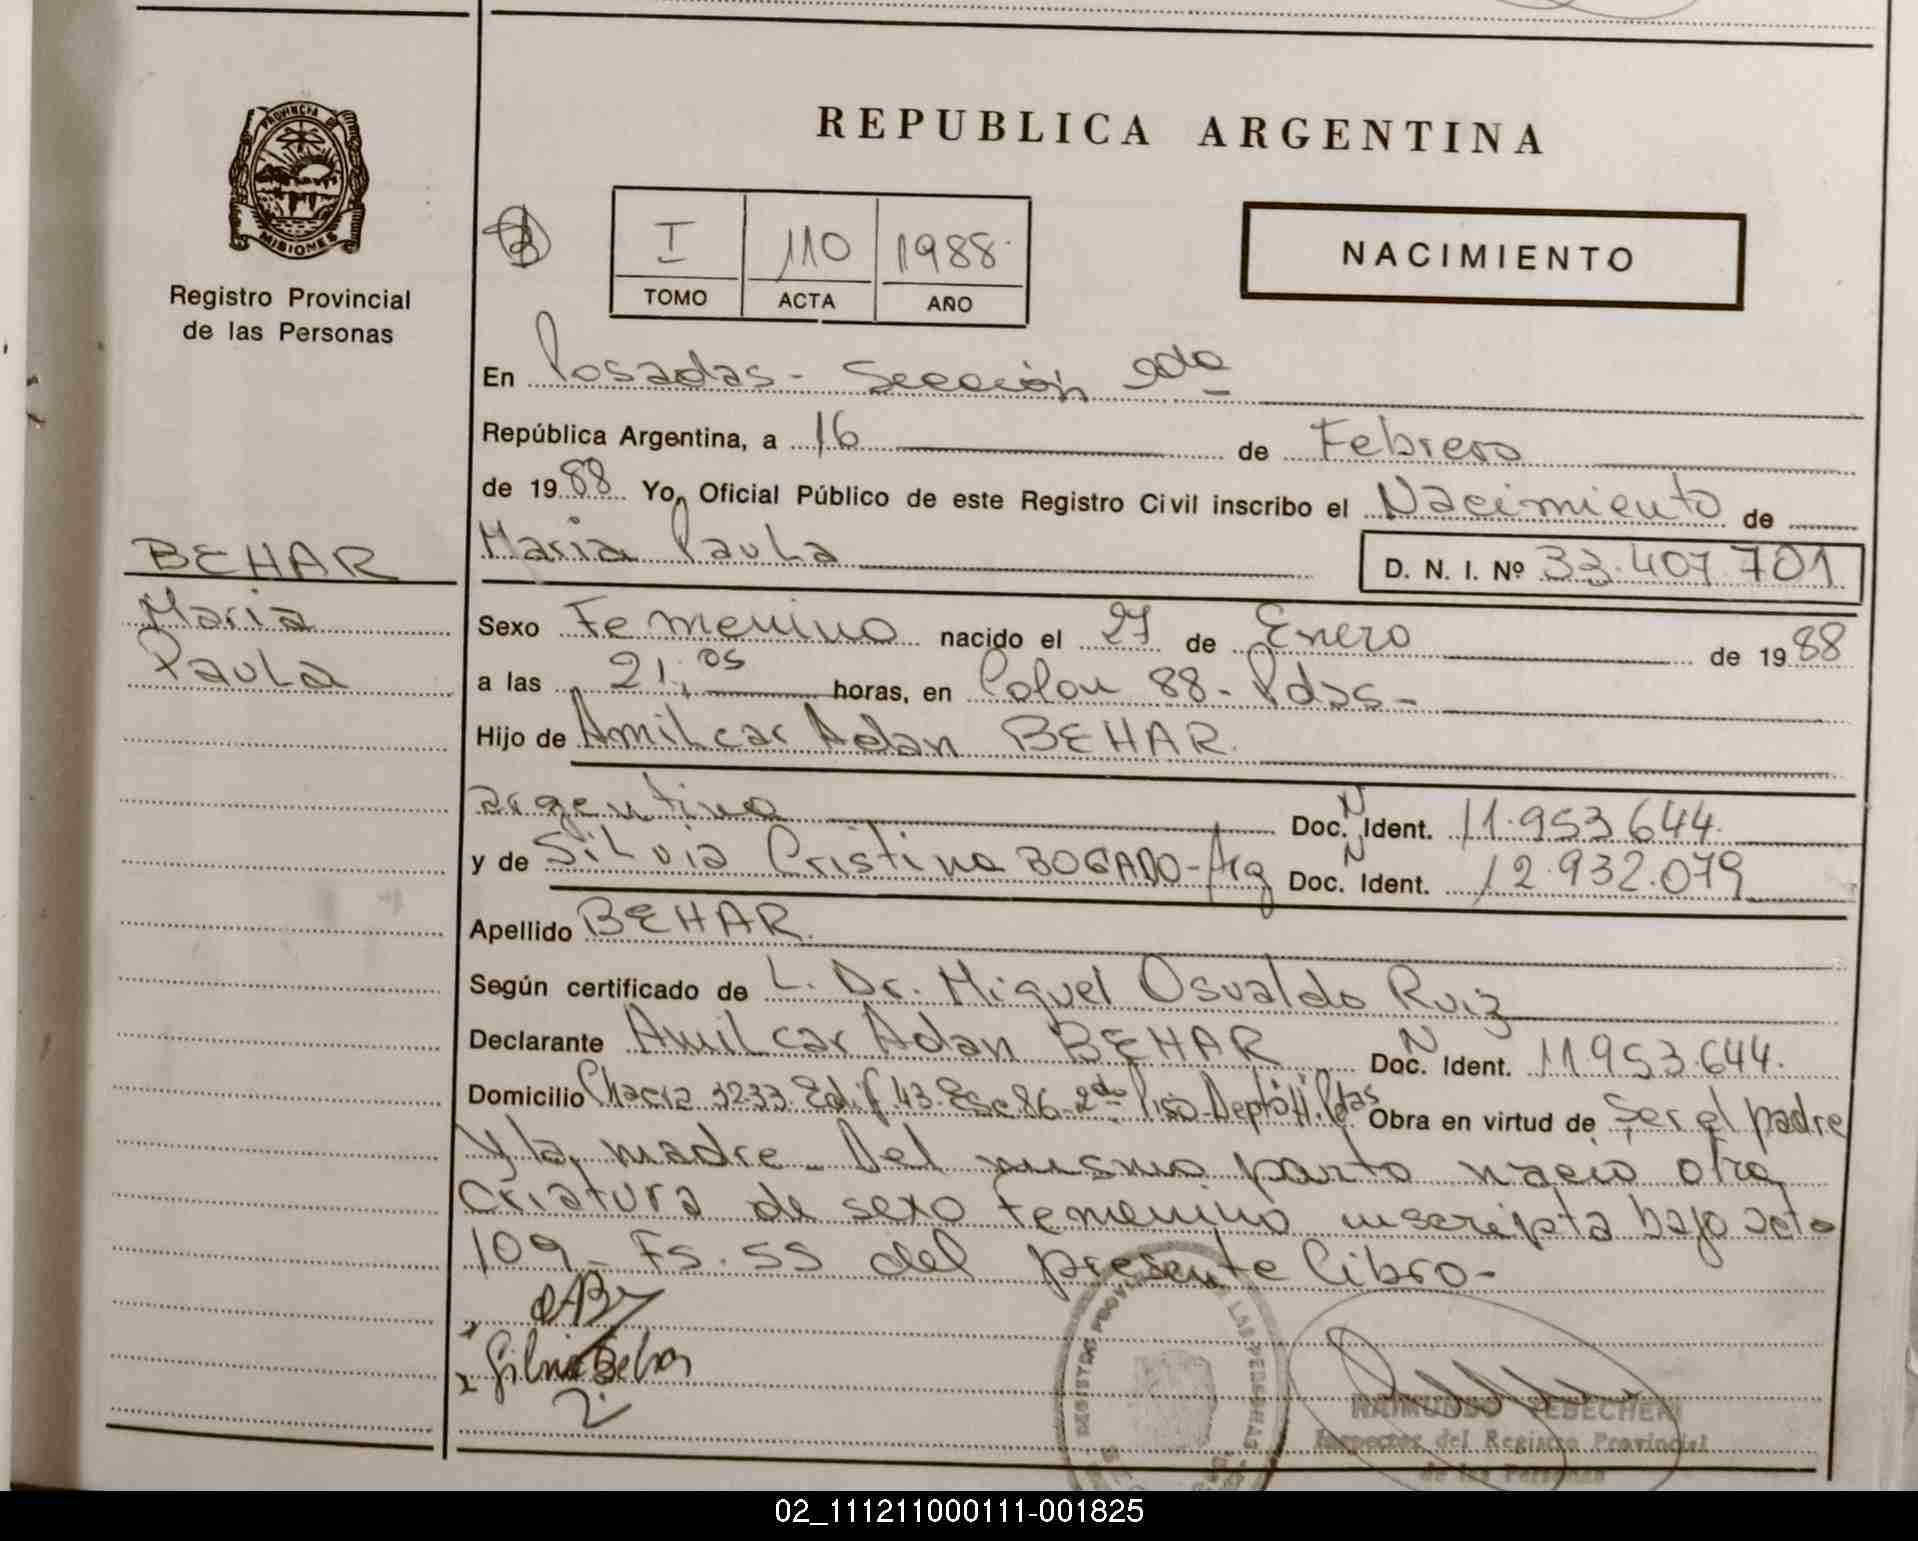 PROVINCIA DE
MISIONES
Registro Provincial
de las Personas
REPUBLICA ARGENTINA
I 110 1988
TOMO ACTA AÑO
NACIMIENTO
En Posadas - Sección 2da
República Argentina, a 16 de Febrero
de 1988 Yo, Oficial Público de este Registro Civil inscribo el Nacimiento de
Maria Paula D. N. I. Nº 33.407.701
BEHAR
Maria
Paula
Sexo Femenino nacido el 27 de Enero de 1988
a las 21,05 horas, en Colon 88 - Pdas -
Hijo de Amilcar Adan BEHAR.
argentino Doc. N Ident. 11.953.644.
y de Silvia Cristina BOGADO - Arg Doc. N Ident. 12.932.079
Apellido BEHAR.
Según certificado de L. Dr. Miguel Osvaldo Ruiz
Declarante Amilcar Adan BEHAR Doc. N Ident. 11.953.644.
Domicilio Chacra 3233. Edif 43. Esc 86 - 2do Piso - Depto H. Pdas Obra en virtud de Ser el padre
y la madre - Del mismo parto nació otra
criatura de sexo femenino inscripta bajo acta
109 - Fs. 55 del presente libro -
x
x Silvia Behar
REGISTRO PROV LAS PERSONAS
RAIMUNDO
Inspector del Registro Provincial
de las Personas
02_111211000111-001825